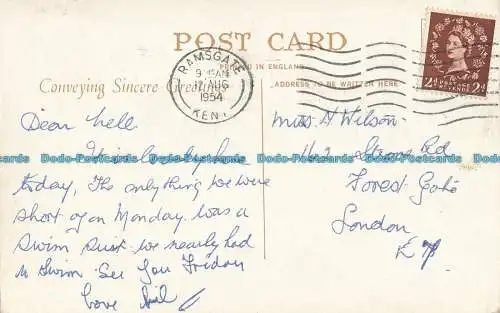 POST CARD
PRINTED IN ENGLAND
Conveying Sincere Greetings
ADDRESS TO BE WRITTEN HERE
RAMSGATE
9 15 AM
17 AUG
1954
KENT
2D 2D
POSTAGE REVENUE
Dear Nell
today, The only thing we were
short of on Monday was a
Swim Suit we nearly had
a swim See you Friday
Love
Miss N Wilson
Rd
Forest Gate
London
E 7
Dodo-Postcards Dodo-Postcards Dodo-Postcards Dodo-Postcards Dodo-Postcards